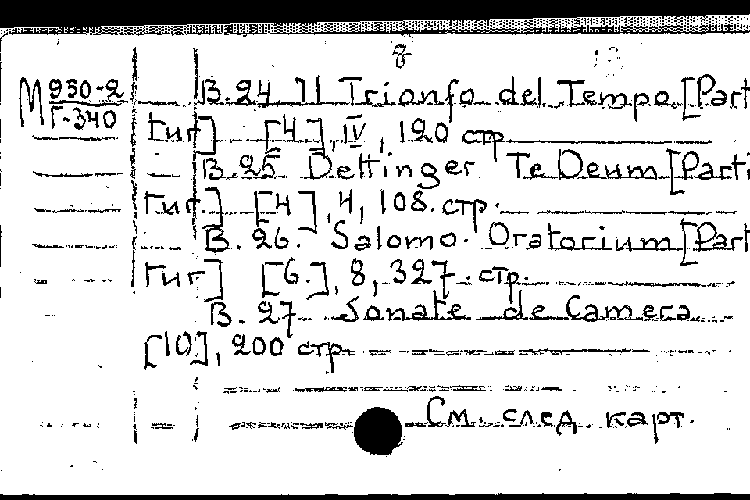 8 13
М 930-2 В.24 Il Trionfo del Tempo [Part
Г-340
tur] [4], IV, 120 стр
В.25 Dettinger Te Deum [Parti
tur] [4], 4, 108. стр.
В. 26. Salomo. Oratorium [Part
tur] [6.], 8, 327. стр.
В. 27 Sonate de Camera
[10], 200 стр
См. след. карт.